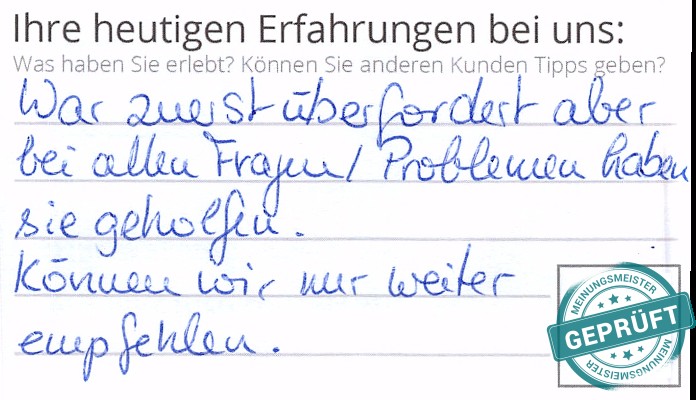 Ihre heutigen Erfahrungen bei uns:
Was haben Sie erlebt? Können Sie anderen Kunden Tipps geben?
War zuerst überfordert aber
bei allen Fragen / Problemen haben
sie geholfen.
Können wir nur weiter
empfehlen.
MEINUNGSMEISTER
GEPRÜFT
MEINUNGSMEISTER